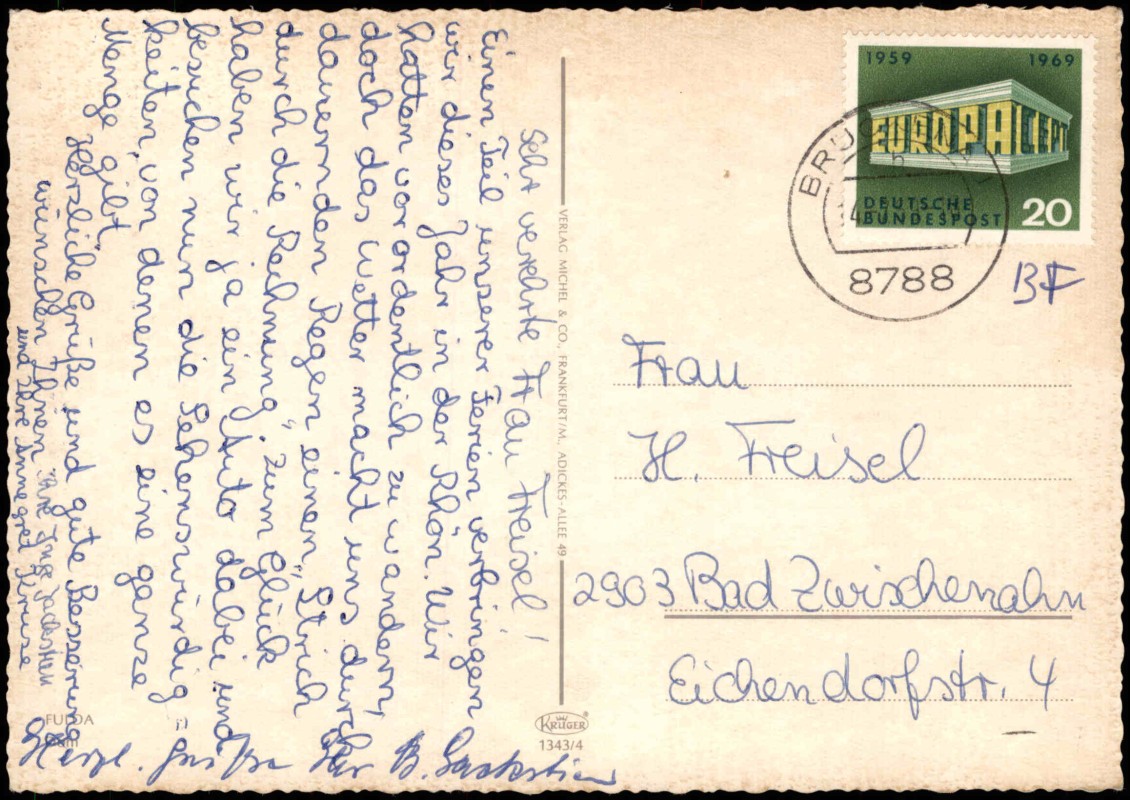 Sehr verehrte Frau Freisel!
Einen Teil unserer Ferien verbringen
wir dieses Jahr in der Rhön. Wir
hatten vor ordentlich zu wandern,
doch das Wetter macht uns durch
dauernden Regen einen „Strich
durch die Rechnung“. Zum Glück
haben wir ja ein Auto dabei und
besuchen nun die Sehenswürdig-
keiten, von denen es eine ganze
Menge gibt.
Herzliche Grüße und gute Besserung
wünschen Ihnen Ihre Inge
und Ihre Annegret Kruse
Herzl. Grüße Ihr B.
FULDA
VERLAG MICHEL & CO., FRANKFURT/M., ADICKES-ALLEE 49
KRÜGER
1343/4
1959 1969
EUROPA CEPT
DEUTSCHE
BUNDESPOST 20
8788
BF
Frau
H. Freisel
2903 Bad Zwischenahn
Eichendorfstr. 4